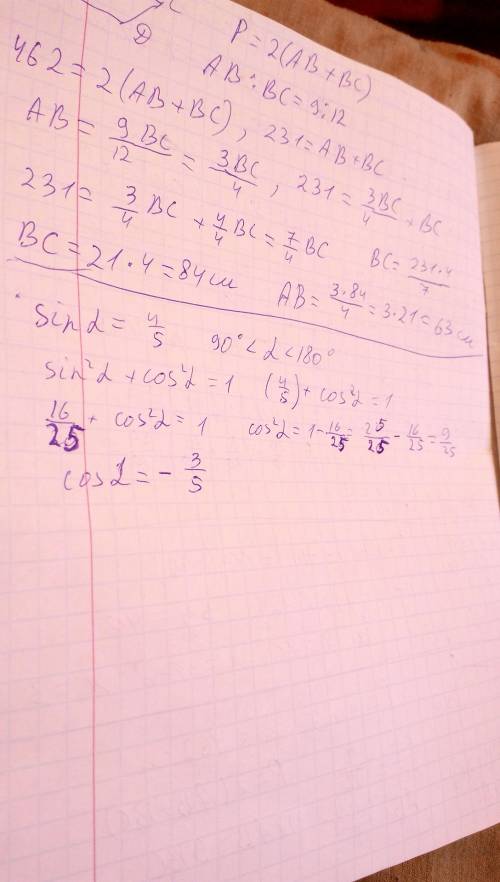 D
P = 2(AB + BC)
AB : BC = 9:12
462 = 2(AB + BC), 231 = AB + BC
AB = 9BC/12 = 3BC/4, 231 = 3BC/4 + BC
231 = 3/4 BC + 4/4 BC = 7/4 BC BC = 231·4/7
BC = 21·4 = 84см AB = 3·84/4 = 3·21 = 63см
sin α = 4/5 90° < α < 180°
sin²α + cos²α = 1 (4/5) + cos²α = 1
16/25 + cos²α = 1 cos²α = 1 - 16/25 = 25/25 - 16/25 = 9/25
cos α = - 3/5